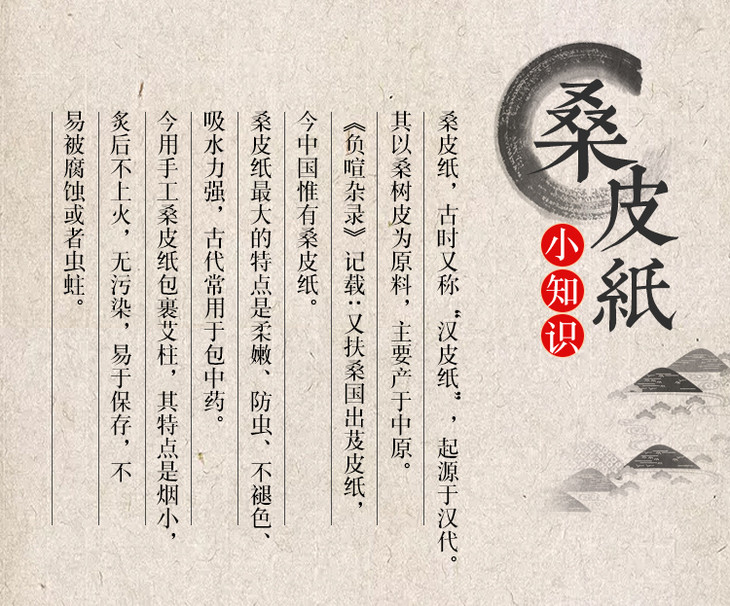 桑皮紙
小知识
桑皮纸，古时又称“汉皮纸”，起源于汉代。
其以桑树皮为原料，主要产于中原。
《负喧杂录》记载：又扶桑国出芨皮纸，
今中国惟有桑皮纸。
桑皮纸最大的特点是柔嫩、防虫、不褪色、
吸水力强，古代常用于包中药。
今用手工桑皮纸包裹艾柱，其特点是烟小，
炙后不上火，无污染，易于保存，不
易被腐蚀或者虫蛀。